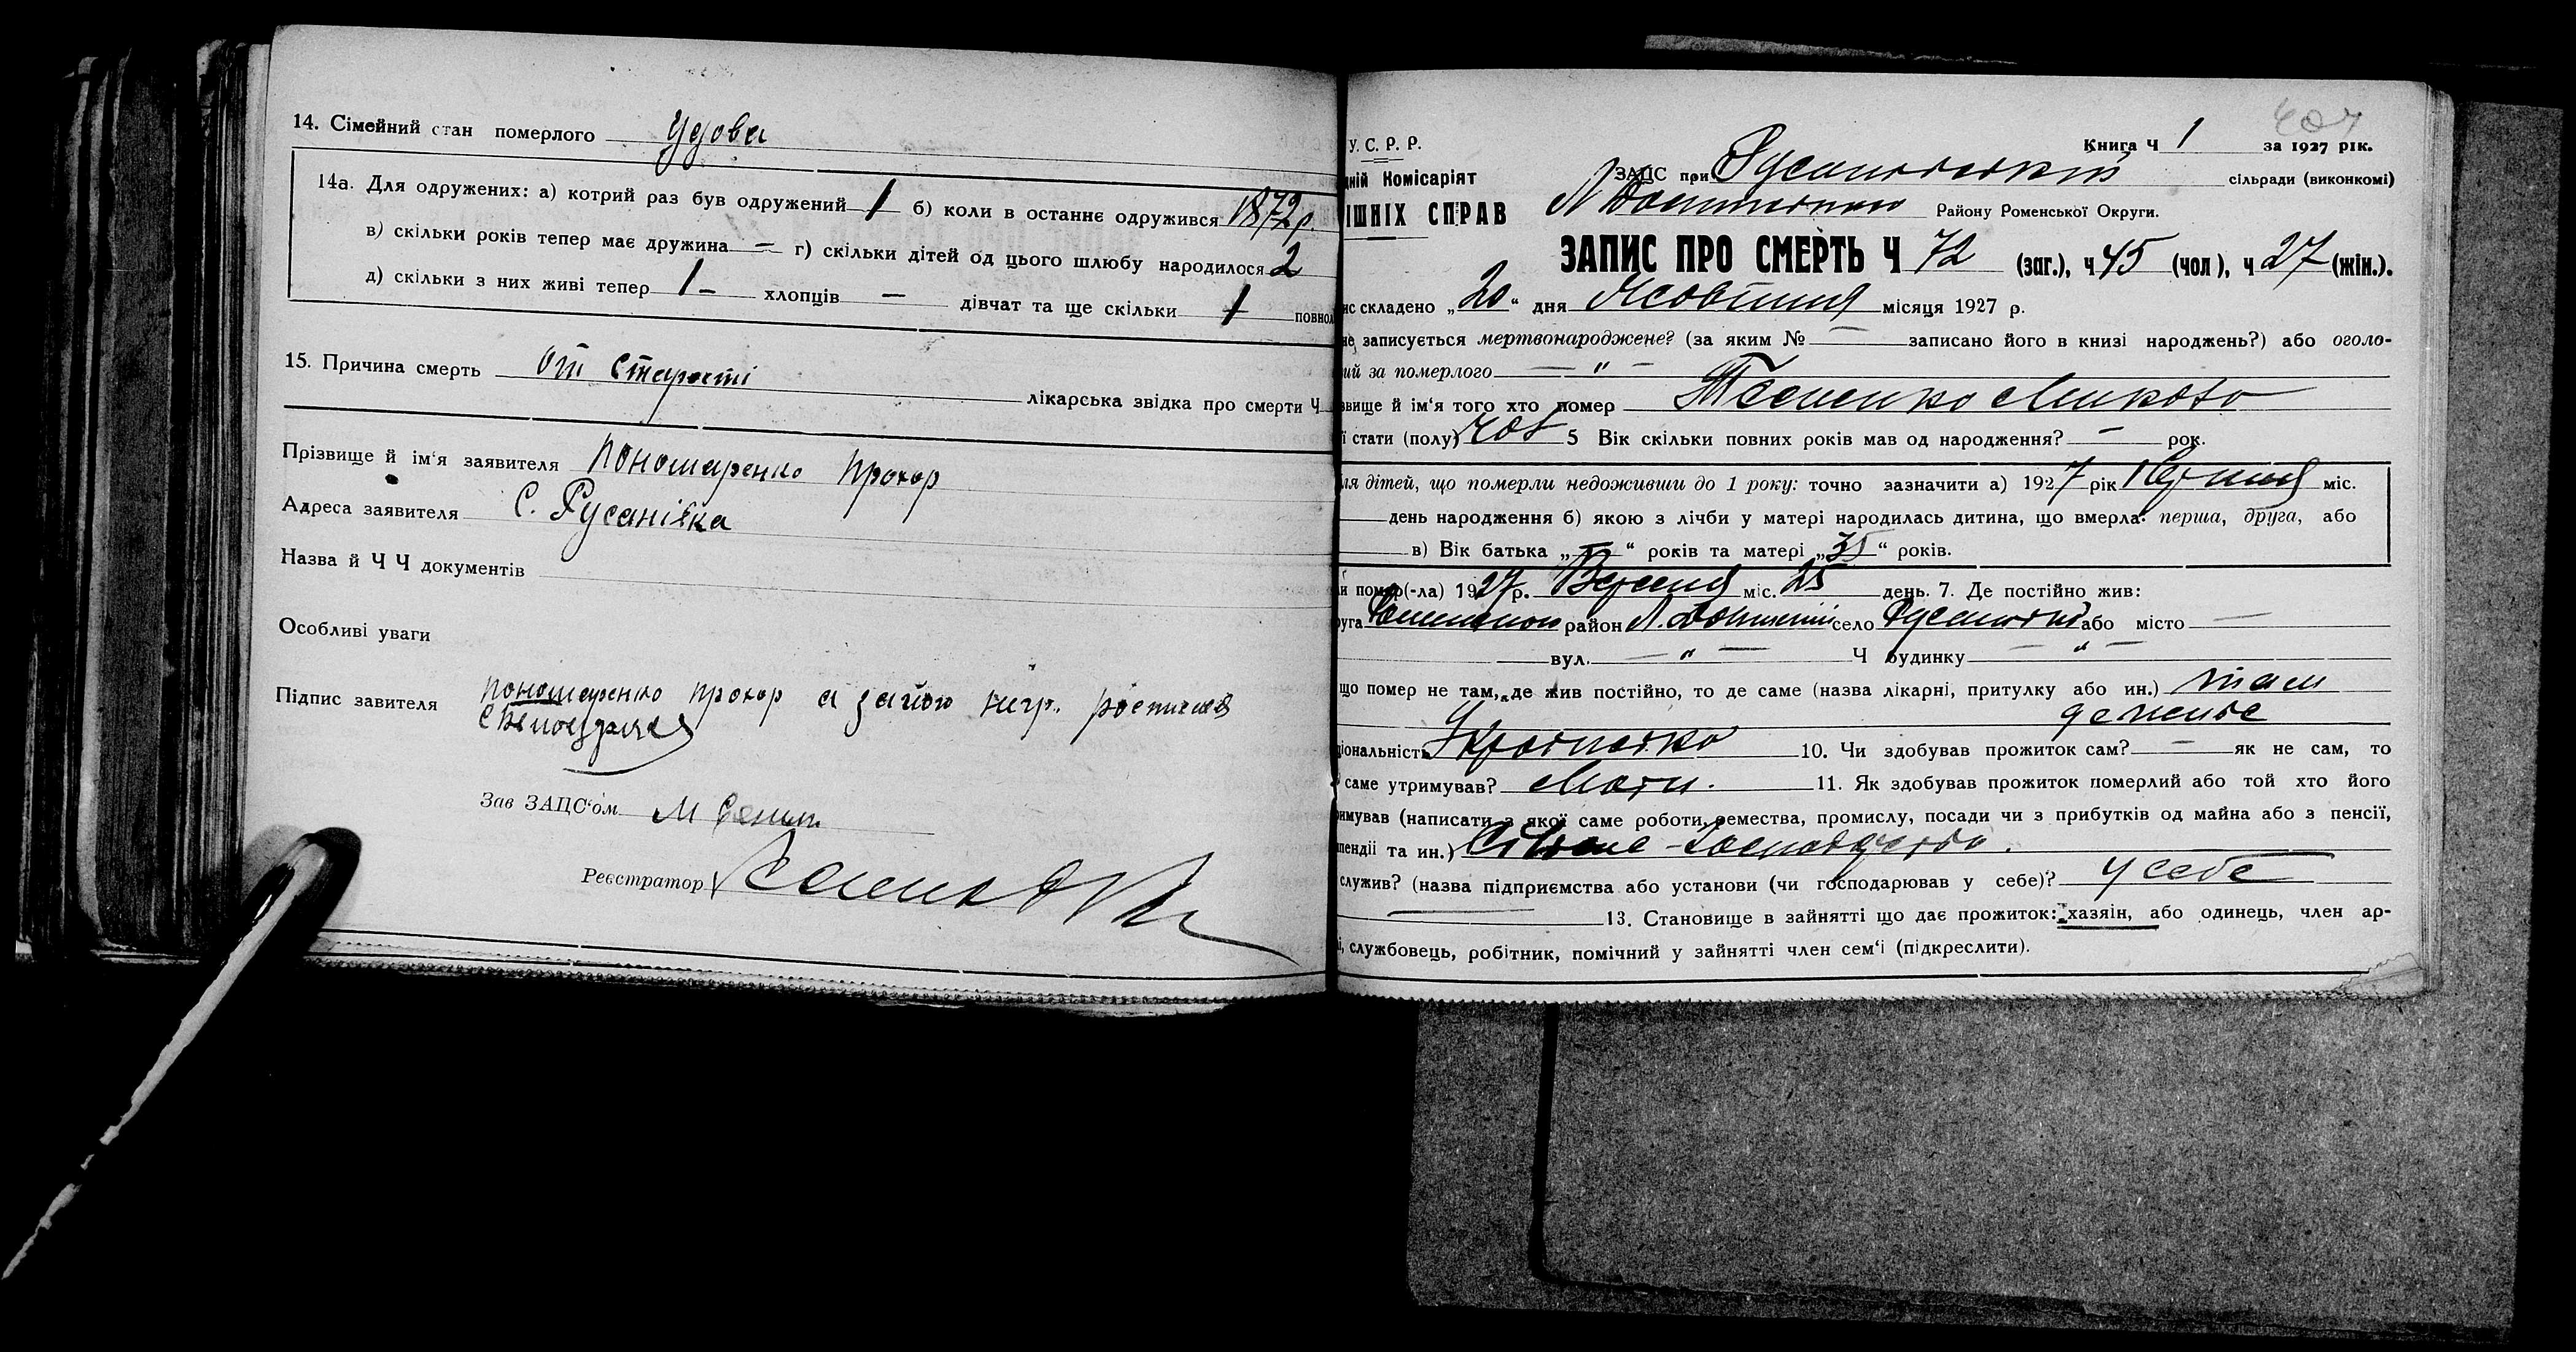 14. Сімейний стан померлого Удова
14а. Для одружених: а) котрий раз був одружений 1 б) коли в останнє одружився 1872 р.
в) скільки років тепер має дружина — г) скільки дітей од цього шлюбу народилося 2
д) скільки з них живі тепер 1 — хлопців — дівчат та ще скільки 1 повнол
15. Причина смерть от старости
лікарська звідка про смерти Ч
Прізвище й ім‘я заявителя Пономаренко Прохор
Адреса заявителя С. Русанівка
Назва й Ч Ч документів
Особливі уваги
Підпис завителя Пономаренко Прохор а за його негр.
Зав ЗАЦС‘ом М
Реєстратор
407
У. С. Р. Р.
Книга Ч 1 за 1927 рік.
дній Комісаріят
ЗАЦС при сільради (виконкомі)
ІШНІХ СПРАВ
Району Роменської Округи.
ЗАПИС ПРО СМЕРТЬ Ч 72 (заг.), ч 45 (чол), ч 27 (жін.).
ис складено „20“ дня Жовтня місяця 1927 р.
не записується мертвонароджене? (за яким № — записано його в книзі народжень?) або оголо-
ий за померлого — " —
звище й ім‘я того хто помер Микола
ї стати (полу) чол 5 Вік скільки повних років мав од народження? — рок.
ля дітей, що померли недоживши до 1 року: точно зазначити а) 1927 рік міс.
день народження б) якою з лічби у матері народилась дитина, що вмерла: перша, друга, або
в) Вік батька „—“ років та матері „35“ років.
и помер(-ла) 1927 р. Вересня міс. 25 день. 7. Де постійно жив:
руга район село або місто —
вул. — " — Ч будинку — " —
що помер не там, де жив постійно, то де саме (назва лікарні, притулку або ин.) там
де живе
ціональність Українська 10. Чи здобував прожиток сам? — як не сам, то
саме утримував? Мати. 11. Як здобував прожиток померлий або той хто його
римував (написати з якої саме роботи, ремества, промислу, посади чи з прибутків од майна або з пенсії,
пендії та ин.) Сільське-господарство.
служив? (назва підприємства або установи (чи господарював у себе)? у себе
13. Становище в зайнятті що дає прожиток: хазяїн, або одинець, член ар-
і, службовець, робітник, помічний у зайнятті член сем‘ї (підкреслити).